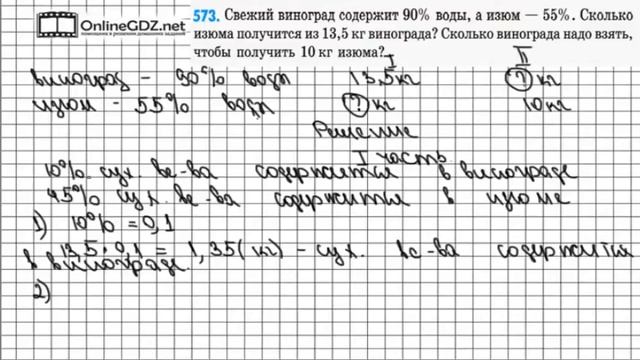 OnlineGDZ.net
573. Свежий виноград содержит 90% воды, а изюм — 55%. Сколько
изюма получится из 13,5 кг винограда? Сколько винограда надо взять,
чтобы получить 10 кг изюма?
I II
виноград - 90% воды 13,5кг ? кг
изюм - 55% воды ? кг 10кг
Решение
I часть
10% сух. ве-ва содержится в винограде
45% сух. ве-ва содержится в изюме
1) 10% = 0,1
13,5 · 0,1 = 1,35(кг) - сух. ве-ва содержится
в винограде.
2)